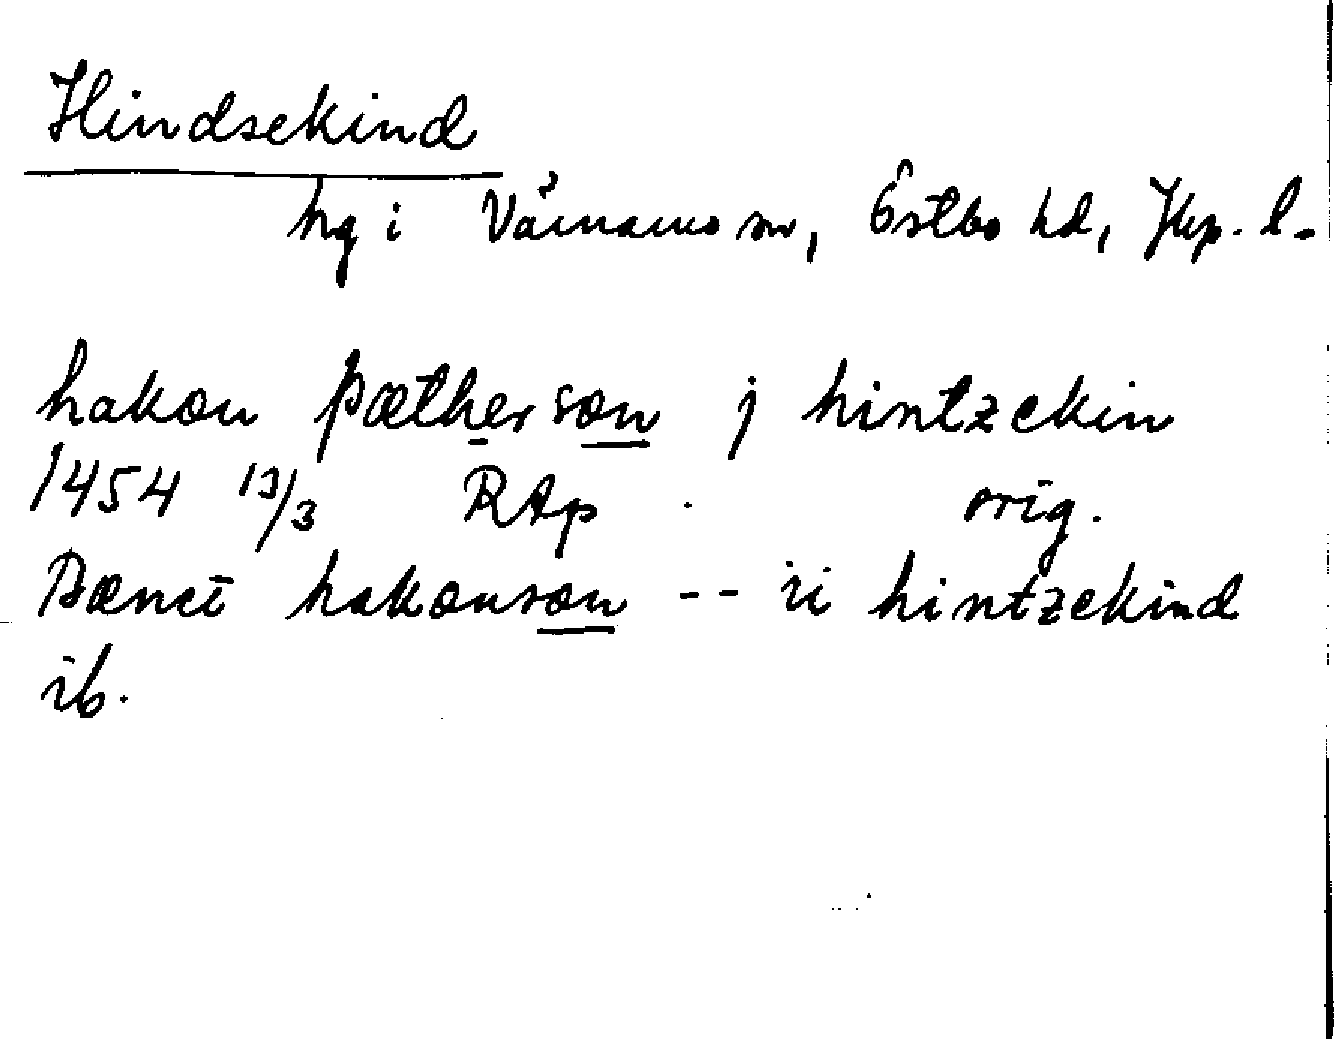 Hindsekind
hg i Värnamo sn, Östbo hd, Jkp. l.
hakon pætherson j hintzekin
1454 13/3 RAp. orig.
Bænct hakonson -- ii hintzekind
ib.